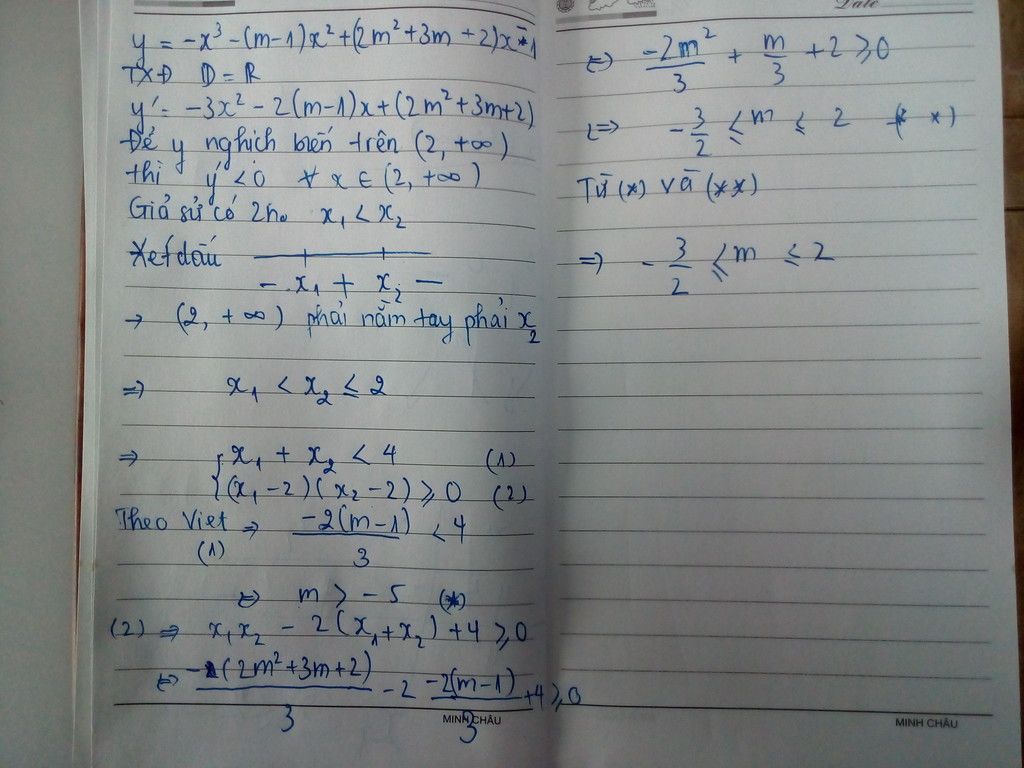 y = -x³ - (m-1)x² + (2m² + 3m + 2)x - 1
TXĐ D = ℝ
y' = -3x² - 2(m-1)x + (2m² + 3m + 2)
Để y nghịch biến trên (2, +∞)
thì y' < 0 ∀ x ∈ (2, +∞)
Giả sử có 2 n₀ x₁ < x₂
Xét dấu
- x₁ + x₂ -
→ (2, +∞) phải nằm tay phải x₂
⇒ x₁ < x₂ ≤ 2
⇒ { x₁ + x₂ < 4 (1)
{ (x₁ - 2)(x₂ - 2) ≥ 0 (2)
Theo Viet ⇒ -2(m-1)/3 < 4
(1)
⇔ m > -5 (*)
(2) ⇒ x₁x₂ - 2(x₁ + x₂) + 4 ≥ 0
⇔ -(2m² + 3m + 2)/3 - 2 -2(m-1)/3 + 4 ≥ 0
MINH CHÂU
Date
⇔ -2m²/3 + m/3 + 2 ≥ 0
⇔ -3/2 ≤ m ≤ 2 (**)
Từ (*) và (**)
⇒ -3/2 ≤ m ≤ 2
MINH CHÂU